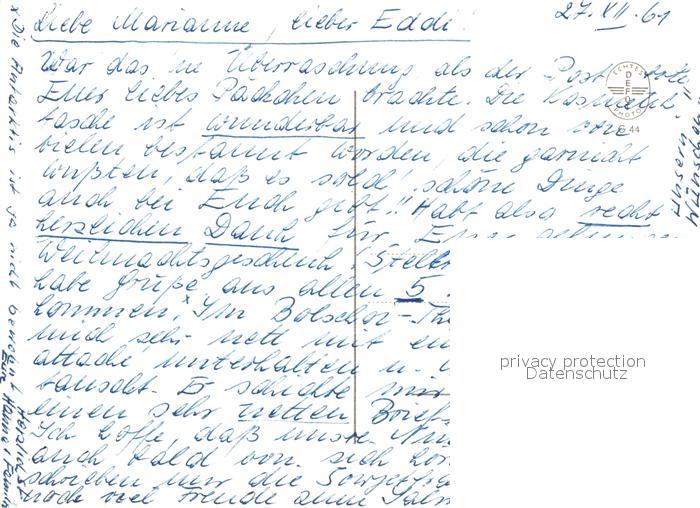 Liebe Marianne, lieber Eddi!
27.XII.61
War das 'ne Überraschung als der Post bote
Euer liebes Päckchen brachte. Die Kosmetik
tasche ist wunderbar und schon von
vielen bestaunt worden, die garnicht
wußten, daß es solch' schöne Dinge
auch bei Euch gibt!! Habt also recht
herzlichen Dank für
Weihnachtsgeschenk.
habe Grüße aus allen 5
kommen.x Im Bolschoi-
mich sehr nett mit
attaché unterhalten u.
tauscht. Er schickte mir
einen sehr netten Brief
Ich hoffe, daß
auch bald von sich
schrieben mir die
noch viel Freude
x Die Antarktis ist ja nicht bewohnt
Herzlichst
Eure Hanna + Family
ECHTES
DEFOT
PHOTO
G 44
privacy protection
Datenschutz